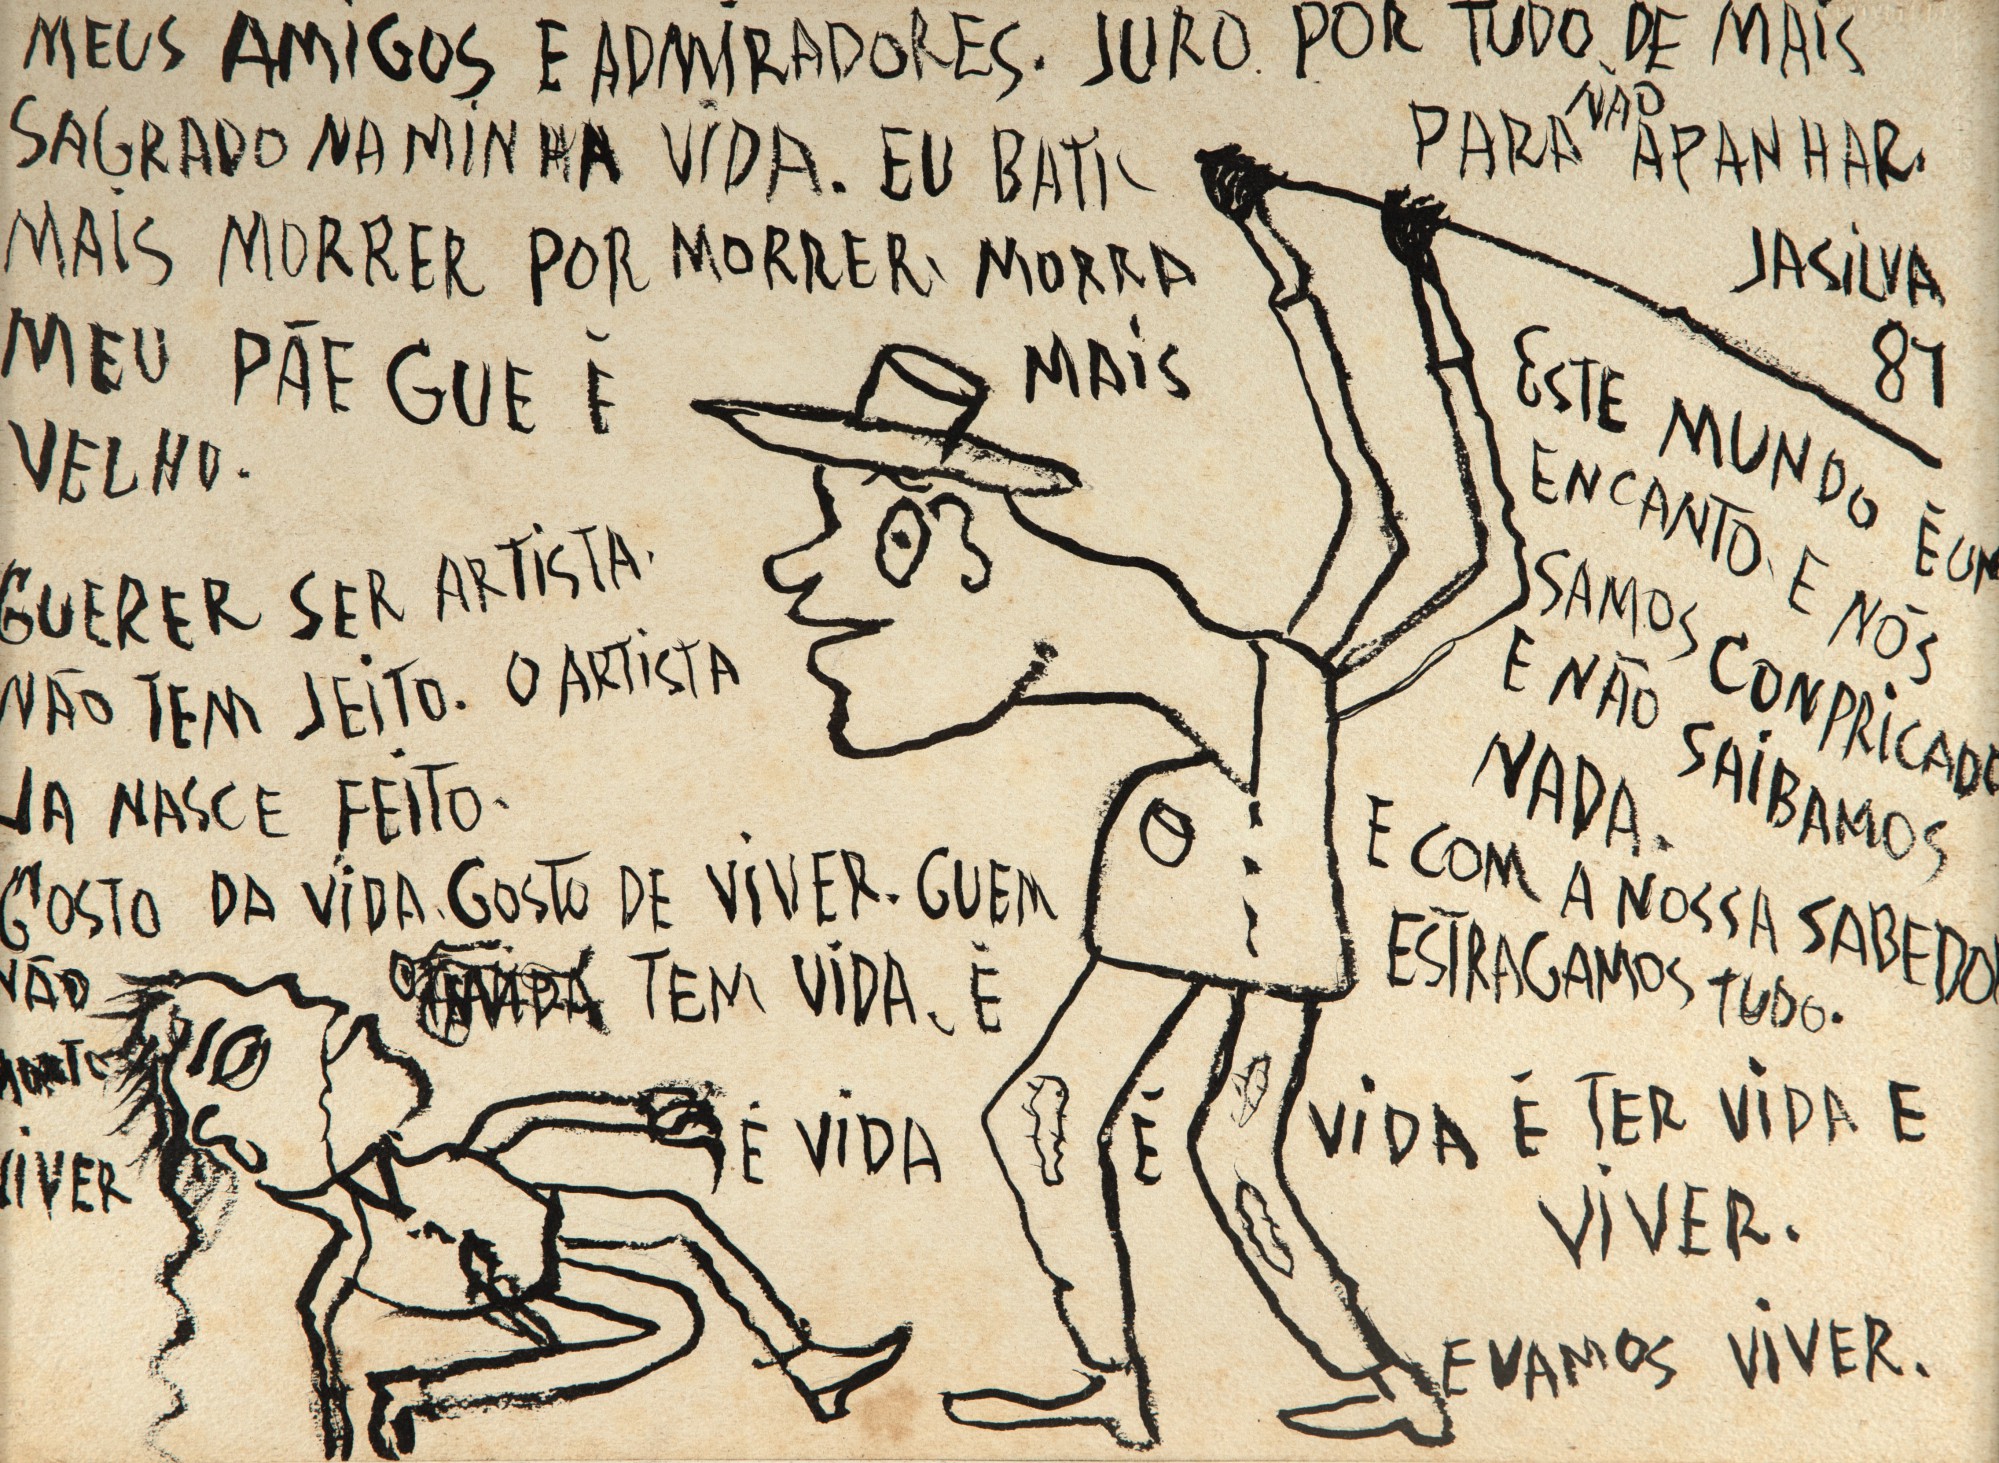 MEUS AMIGOS E ADMIRADORES. JURO. POR TUDO DE MAIS
SAGRADO NA MINHA VIDA. EU BATI PARA NÃO APANHAR.
MAIS MORRER POR MORRER. MORRA
MEU PÃE GUE É MAIS
VELHO.
JASILVA
81
GUERER SER ARTISTA.
NÃO TEM JEITO. O ARTISTA
JA NASCE FEITO.
GOSTO DA VIDA. GOSTO DE VIVER. GUEM
NÃO TEM VIDA. É
VIVER
É VIDA É VIDA É TER VIDA E
VIVER.
E VAMOS VIVER.
ESTE MUNDO É UM
ENCANTO. E NÓS
SAMOS CONPRICADO
E NÃO SAIBAMOS
NADA.
E COM A NOSSA SABEDO
ESTRAGAMOS TUDO.